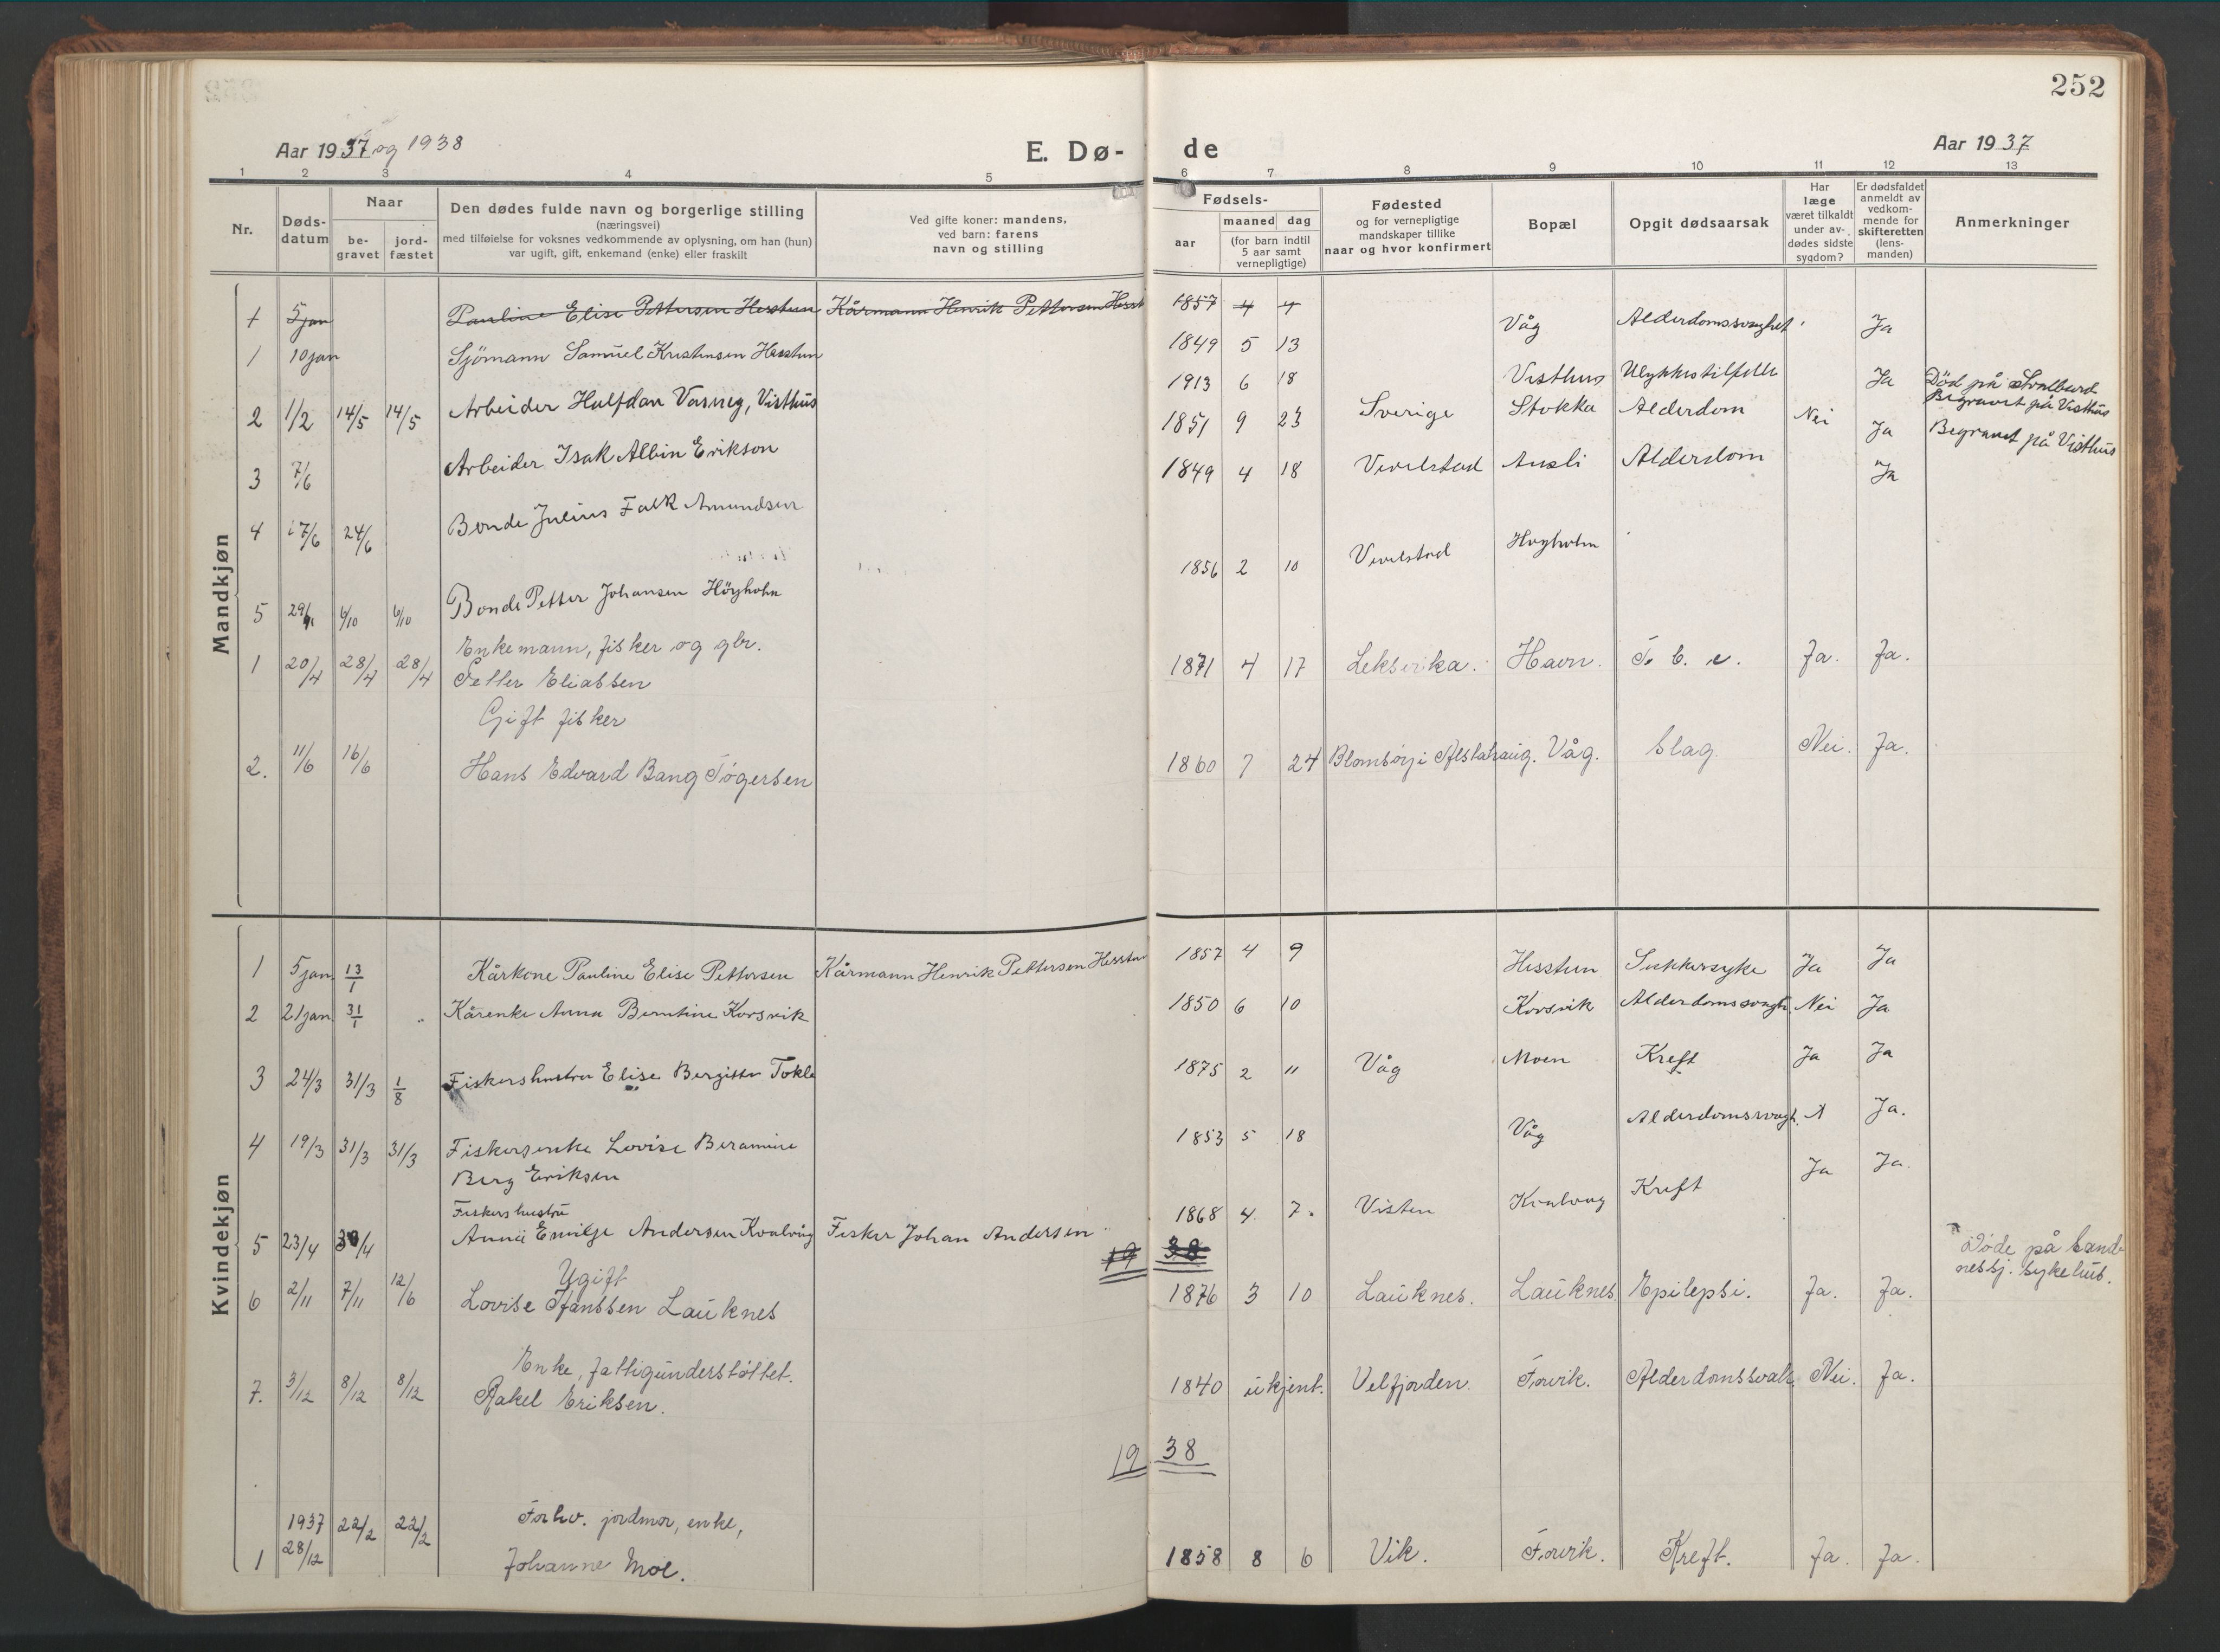 252
Aar 1937 og 1938
E. Dø-
de
Aar 1937
1 2 3 4 5
6 7 8 9 10 11 12 13
Nr.
Døds-
datum
Naar
be-
gravet
jord-
fæstet
Den dødes fulde navn og borgerlige stilling
(næringsvei)
med tilføielse for voksnes vedkommende av oplysning, om han (hun)
var ugift, gift, enkemand (enke) eller fraskilt
Ved gifte koner: mandens,
ved barn: farens
navn og stilling
Fødsels-
aar
maaned dag
(for barn indtil
5 aar samt
vernepligtige)
Fødested
og for vernepligtige
mandskaper tillike
naar og hvor konfirmert
Bopæl
Opgit dødsaarsak
Har
læge
været tilkaldt
under av-
dødes sidste
sygdom?
Er dødsfaldet
anmeldt av
vedkom-
mende for
skifteretten
(lens-
manden)
Anmerkninger
Mandkjøn
1 5 jan Pauline Elise Pettersen Hesstun Kårmann Henrik Pettersen Hesst 1857 4 4
1 10 jan Sjömann Samuel Kristensen Hesstun 1849 5 13 Våg Alderdomssvaghet Ja
2 1/2 14/5 14/5 Arbeider Halfdan Vasneg, Visthus 1913 6 18 Visthus Ulykkestilfelle Ja Död på Svalbard
Begravet på Visthus
3 7/6 Arbeider Isak Albin Erikson 1851 9 23 Sverige Stokka Alderdom Nei Ja Begravet på Visthus
4 17/6 24/6 Bonde Julius Falk Amundsen 1849 4 18 Vevelstad Ausli Alderdom Ja
5 29/9 6/10 6/10 Bonde Petter Johansen Höyholm 1856 2 10 Vevelstad Høyholm
Enkemann, fisker og gbr.
1 20/4 28/4 28/4 Petter Eliassen 1871 4 17 Leksvika. Havn. T. b. c. Ja. Ja.
Gift fisker
2. 11/6 16/6 Hans Edvard Bang Tøgersen 1860 7 24 Blomsøy i Alstahaug. Våg. Slag. Nei. Ja.
Kvindekjøn
1 5 jan 13/1 Kårkone Pauline Elise Pettersen Kårmann Henrik Pettersen Hesstun 1857 4 9 Hesstun Sukkersyke Ja Ja
2 21 jan 31/1 " Kårenke Anna Berntine Korsvik 1850 6 10 Korsvik Alderdomssvagh. Nei Ja
3 24/3 31/3 1/8 Fiskershustru Elise Bergitte Tokle 1875 2 11 Våg Moen Kreft Ja Ja
4 19/3 31/3 31/3 Fiskersenke Lovise Beramine
Berg Eriksen 1853 5 18 Våg Alderdomssvagh. Ja.
Fiskershustru
5 23/4 30/4 Annie Emilie Andersen Kvalvåg Fisker Johan Andersen 1868 4. 7. Visten Kvalvåg Kreft Ja Ja.
19 38
Ugift
6 2/11 7/11 12/6 Lovise Hanssen Lauknes 1876 3 10 Lauknes. Lauknes. Epilepsi. Ja. Ja. Døde på Sand-
nessj. sykehus.
Enke, fattigunderstøttet.
7. 3/12 8/12 8/12 Rakel Eriksen. 1840 ukjent. Velfjorden. Forvik. Alderdomssvakh. Nei. Ja.
19 38
1937
Forhv. jordmor, enke,
1 28/12 22/2 22/2 Johanne Moe. 1858 8 6 Vik. Forvik. Kreft. Ja. Ja.